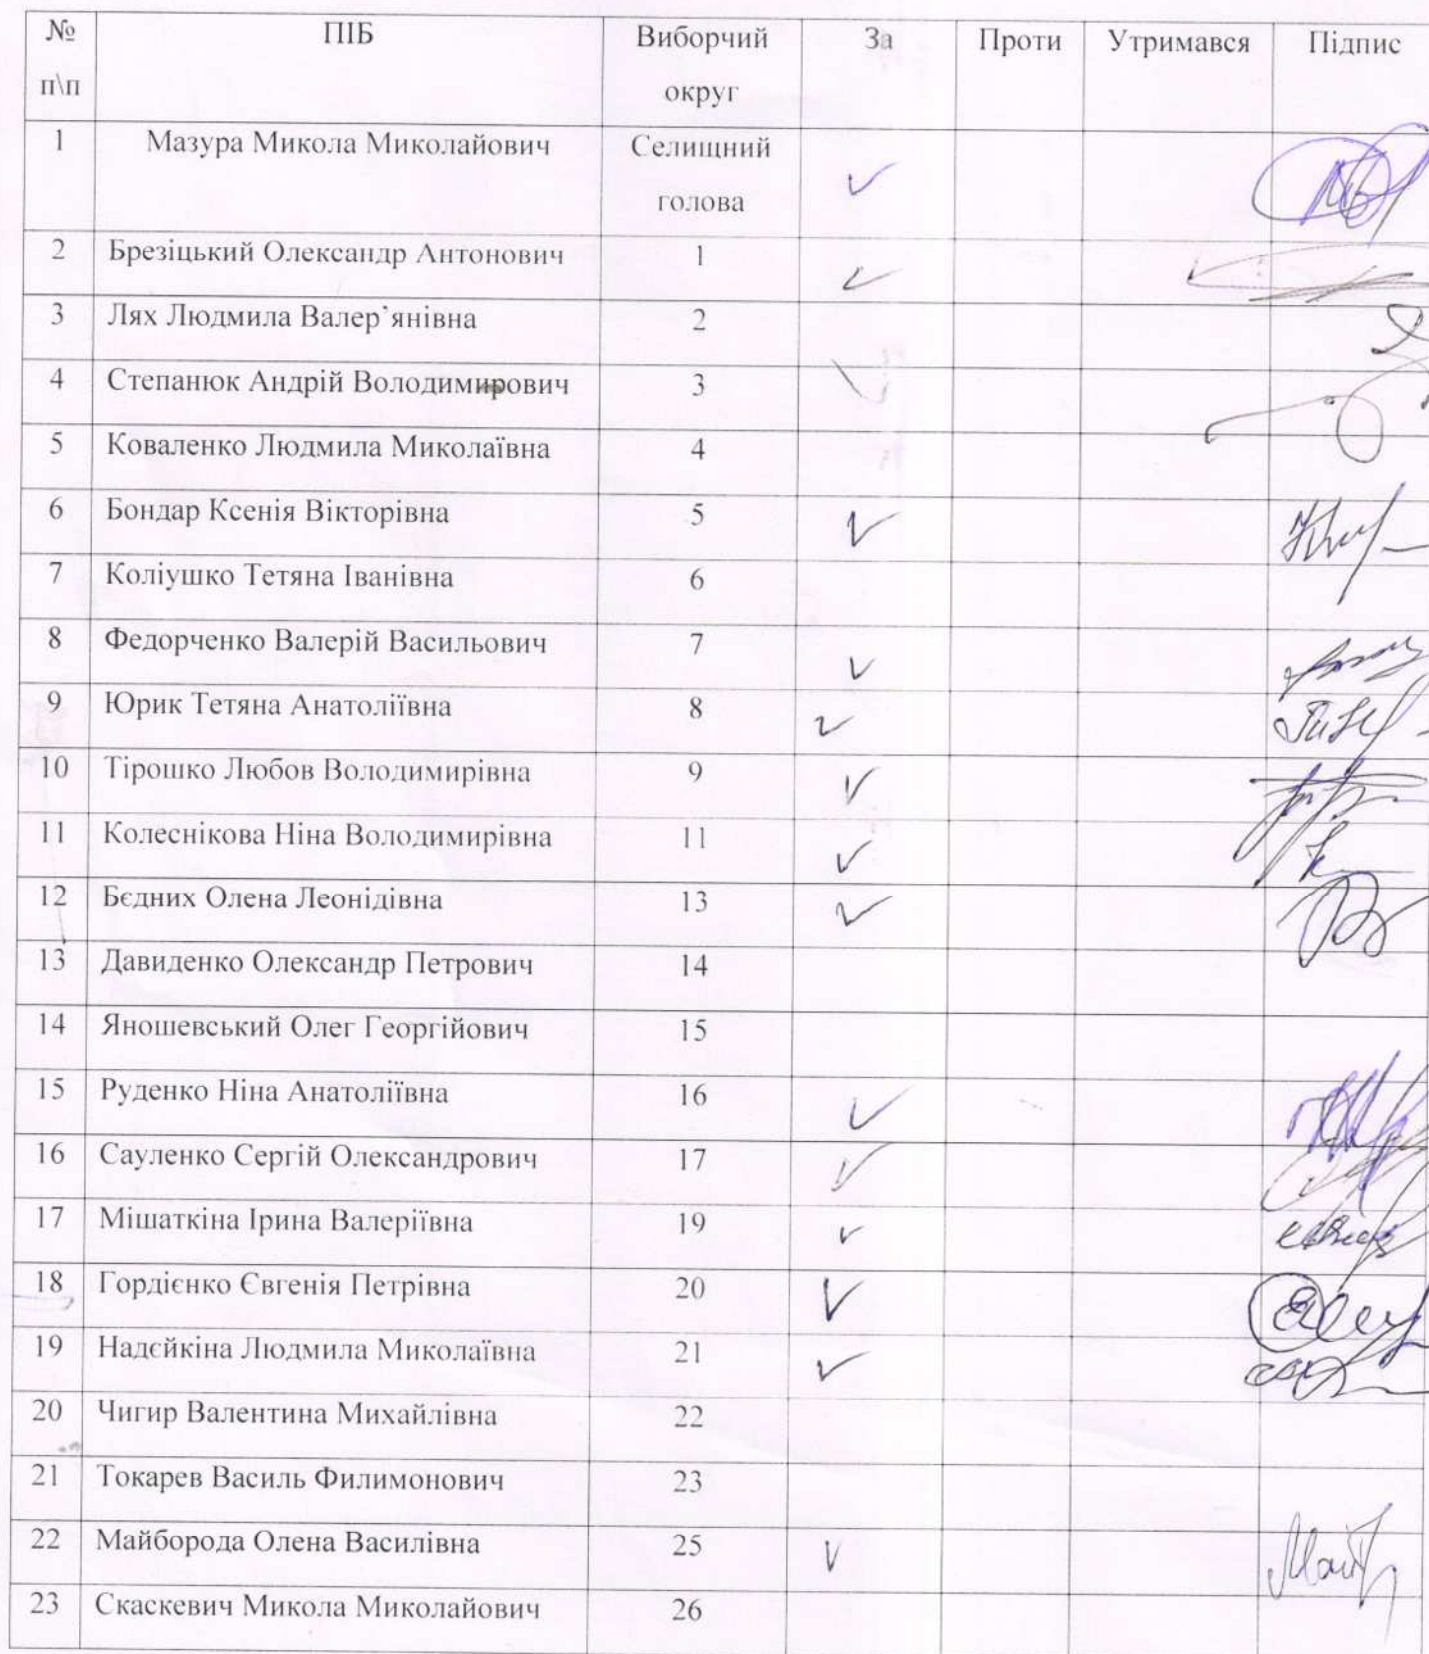 № ПІБ Виборчий За Проти Утримався Підпис
п\п округ
1 Мазура Микола Миколайович Селищний
голова
2 Брезіцький Олександр Антонович 1
3 Лях Людмила Валер`янівна 2
4 Степанюк Андрій Володимирович 3
5 Коваленко Людмила Миколаївна 4
6 Бондар Ксенія Вікторівна 5
7 Коліушко Тетяна Іванівна 6
8 Федорченко Валерій Васильович 7
9 Юрик Тетяна Анатоліївна 8
10 Тірошко Любов Володимирівна 9
11 Колеснікова Ніна Володимирівна 11
12 Бєдних Олена Леонідівна 13
13 Давиденко Олександр Петрович 14
14 Яношевський Олег Георгійович 15
15 Руденко Ніна Анатоліївна 16
16 Сауленко Сергій Олександрович 17
17 Мішаткіна Ірина Валеріївна 19
18 Гордієнко Євгенія Петрівна 20
19 Надєйкіна Людмила Миколаївна 21
20 Чигир Валентина Михайлівна 22
21 Токарев Василь Филимонович 23
22 Майборода Олена Василівна 25
23 Скаскевич Микола Миколайович 26